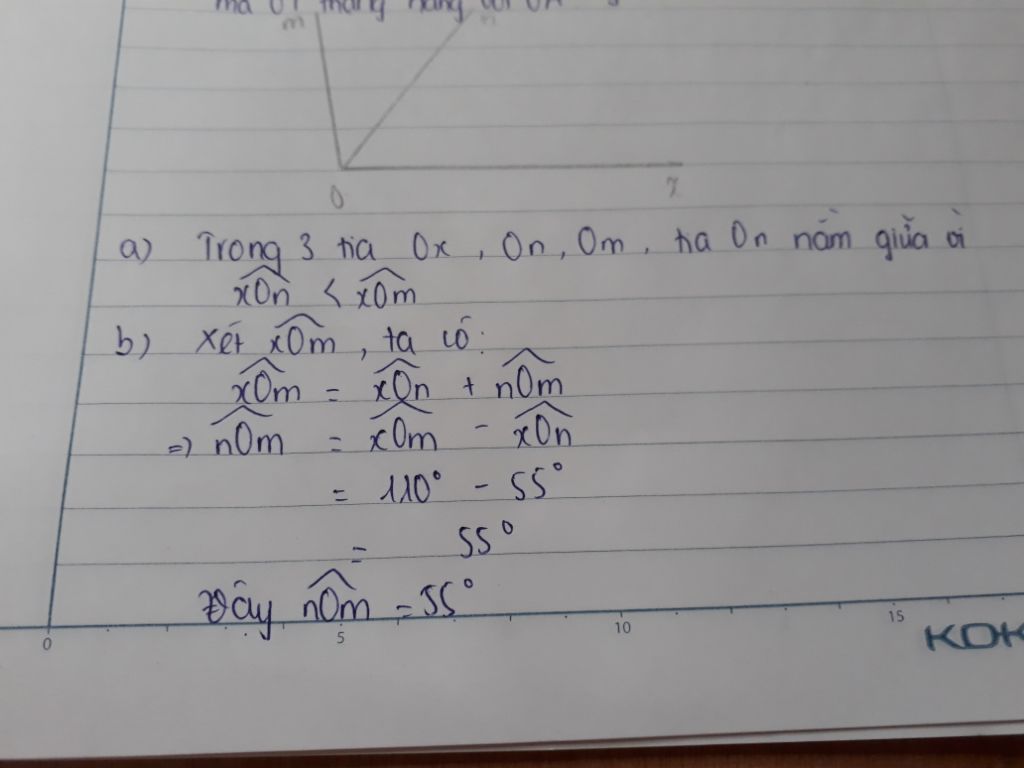 m n
O x
a) Trong 3 tia Ox, On, Om, tia On nằm giữa ởi
xOn < xOm
b) Xét xOm, ta có:
xOm = xOn + nOm
=) nOm = xOm - xOn
= 110° - 55°
= 55°
Đây nOm = 55°
0 5 10 15
KOK